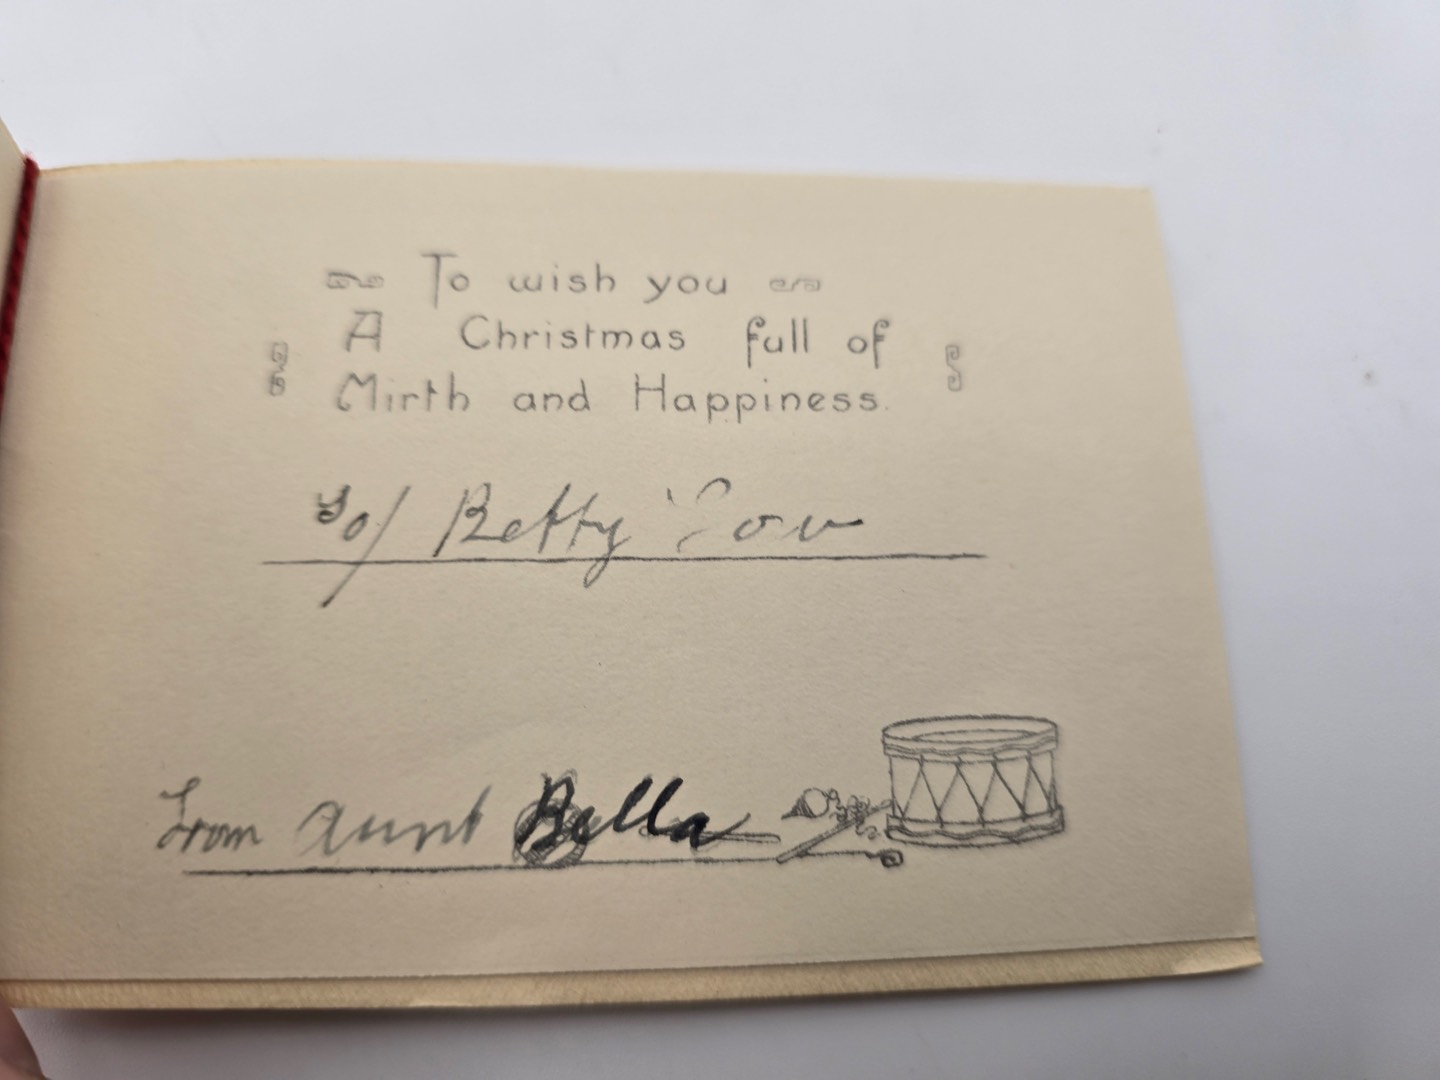 To wish you
A Christmas full of
Mirth and Happiness.
To/ Betty
From Aunt Bella